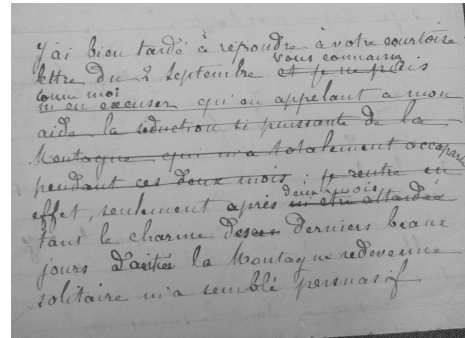 J'ai bien tardé à répondre à votre courtoise
vous connaissez
lettre du 2 Septembre et je ne puis
comme moi
m'en excuser qu'en appelant à mon
aide la séduction si puissante de la
Montagne qui m'a totalement accaparée
pendant ces deux mois ; je rentre en
deux mois
effet, seulement après m'être attardée
tant le charme des derniers beaux
jours la Montagne redevenue
solitaire m'a semblé persuasif